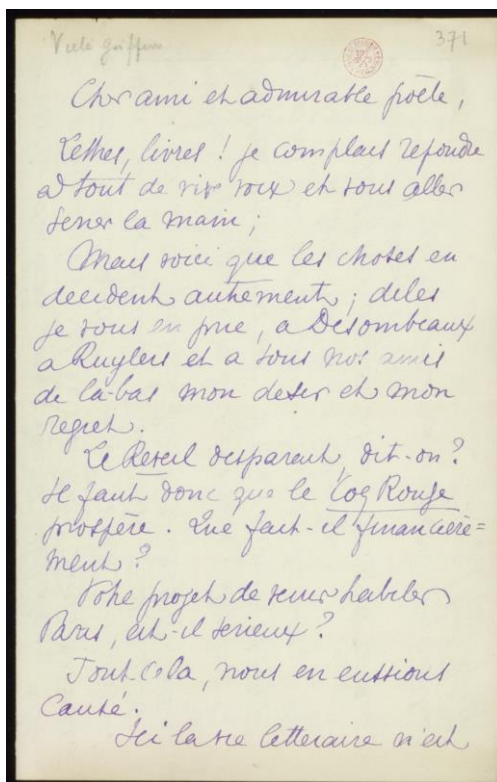 Vielé Griffin
371
Cher ami et admirable poète,
Lettres, livres ! je comptais repondre
à tout de vive voix et vous aller
serrer la main ;
Mais voici que les choses en
decident autrement ; dites
je vous en prie, a Desombeaux
a Ruyters et a tous nos amis
de la-bas mon desir et mon
regret.
Le Réveil disparait, dit-on ?
Il faut donc que le Coq Rouge
prospère. Que fait-il financière=
ment ?
Votre projet de venir habiter
Paris, est-il serieux ?
Tout cela, nous en eussions
Causé.
Ici la vie litteraire n'est